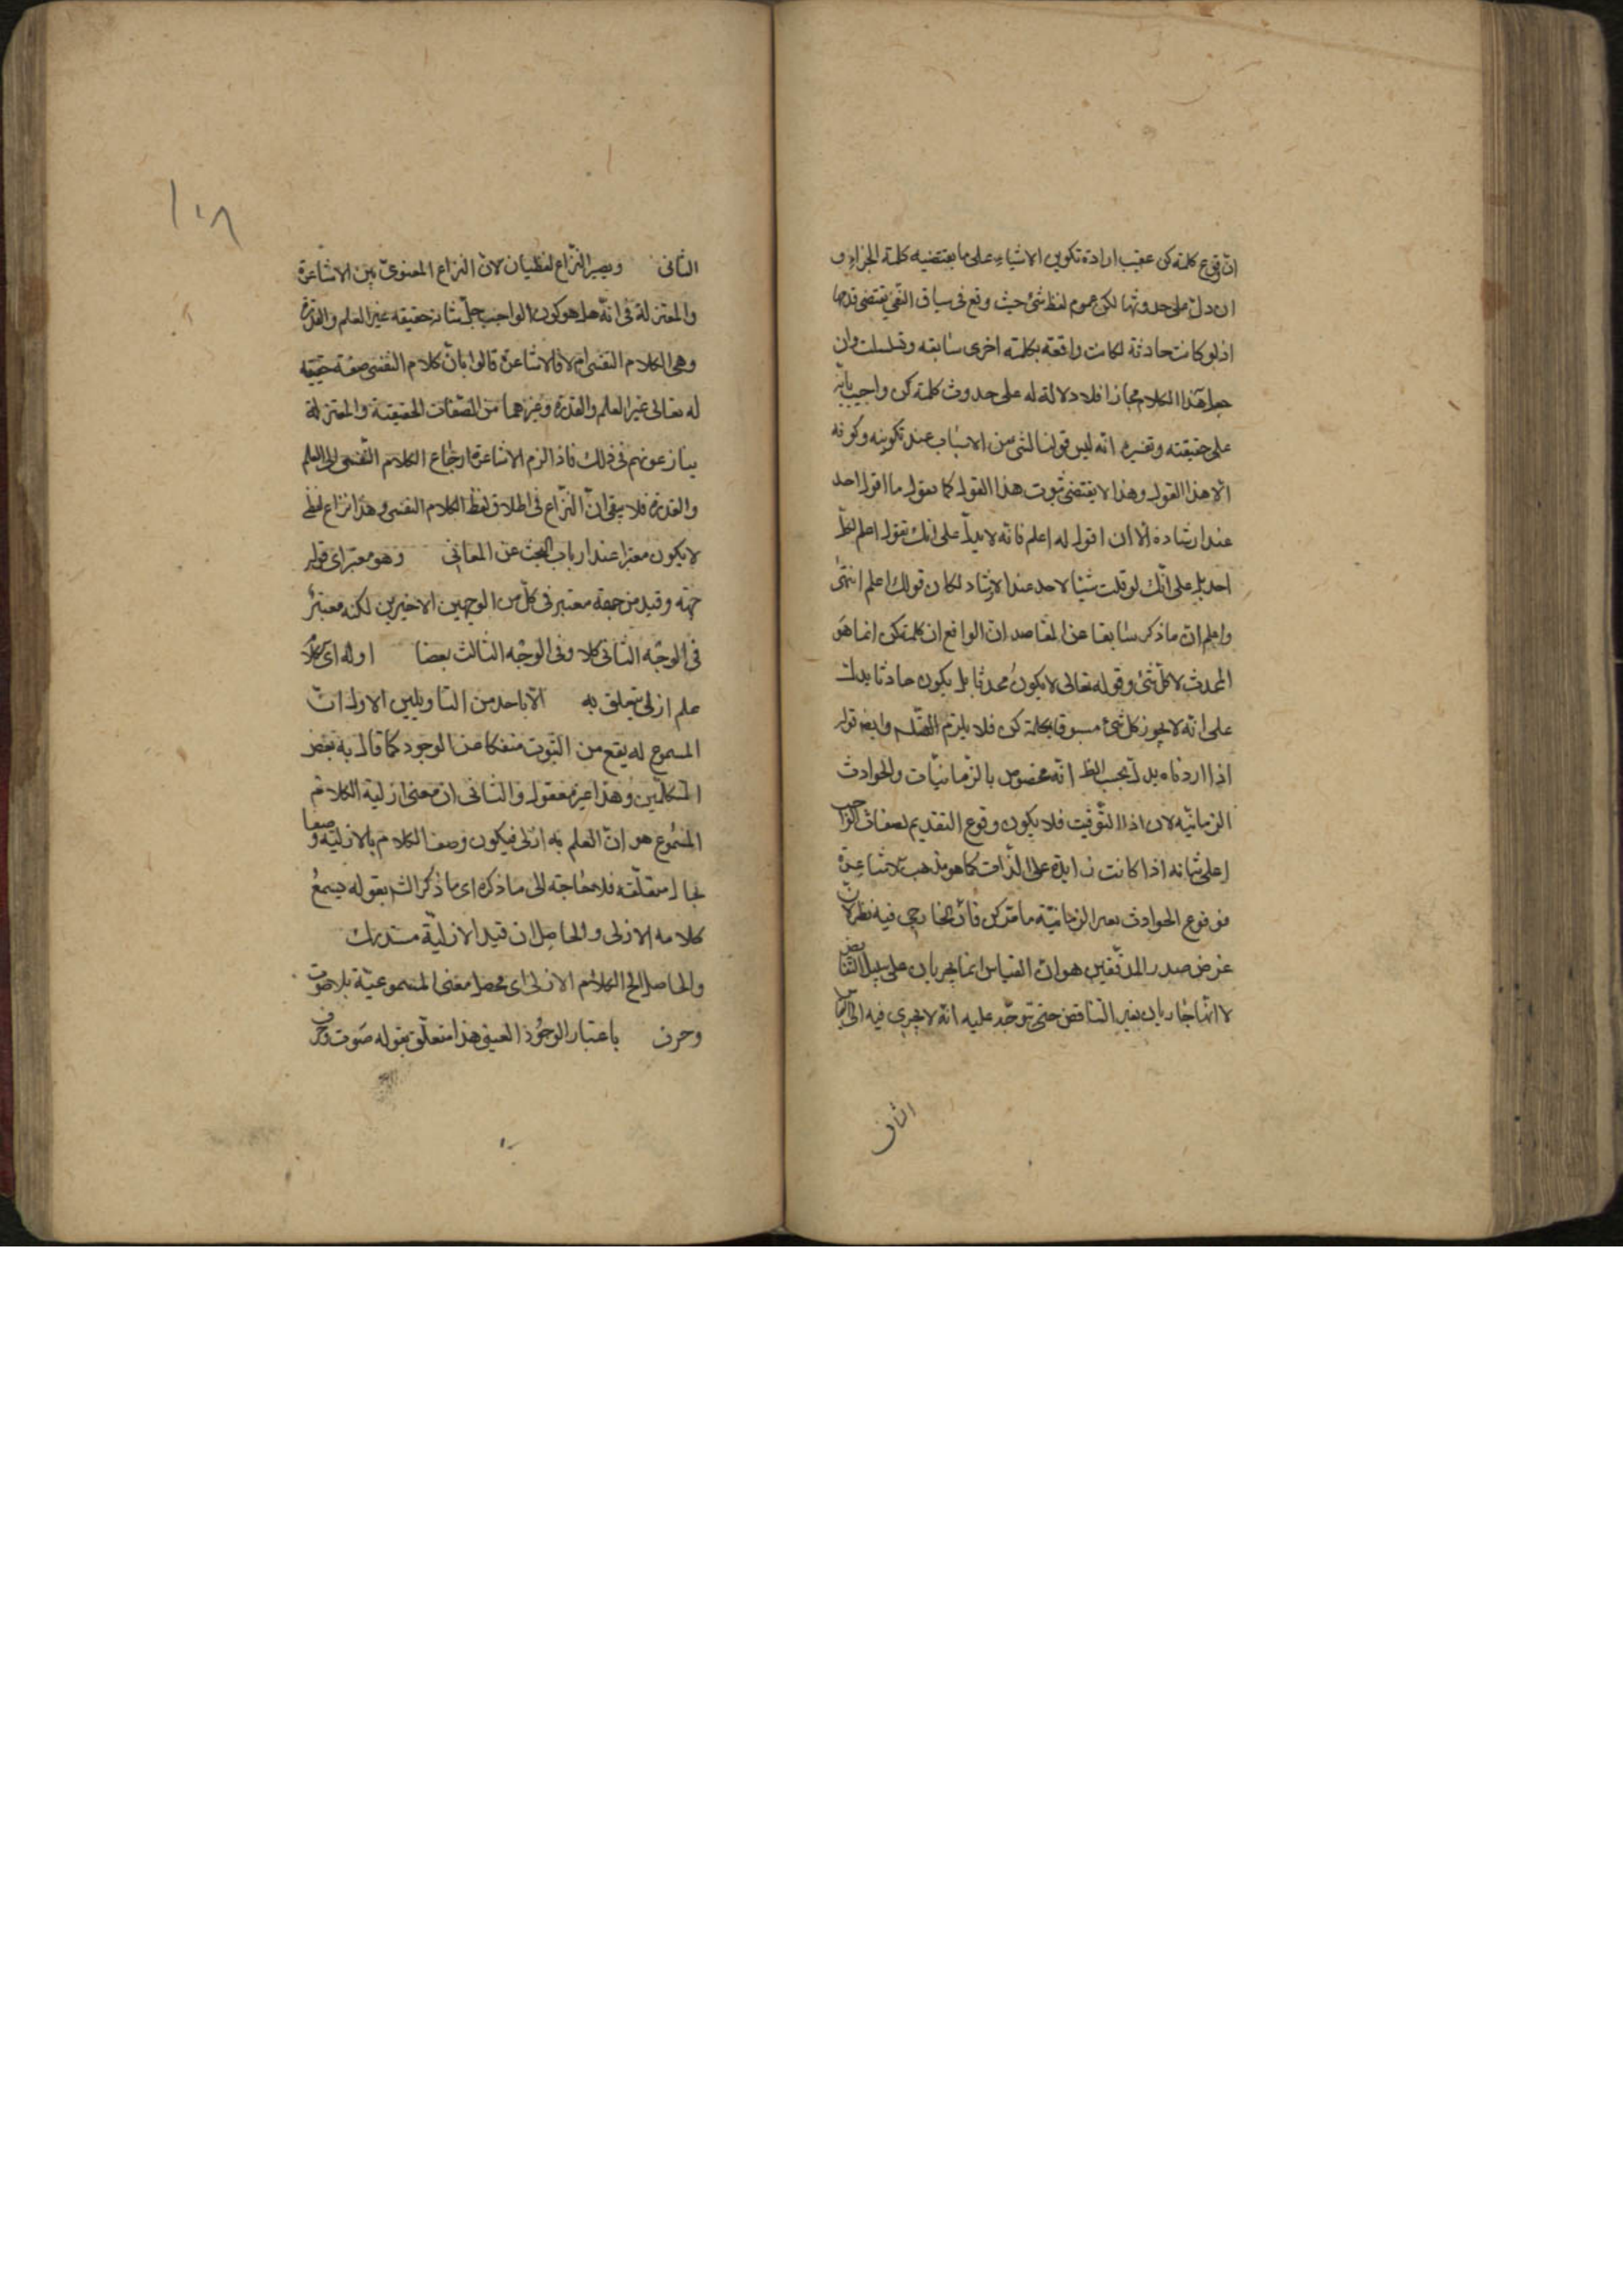 ان وقوع كلمة كن عقيب ارادة تكوين الاشياء على ما يقتضيه كلمة الجزاء و
ان دل على حدوثها لكن عموم لفظ شئ حيث وقع فى سياق النفى يقتضى قدمها
اذ لو كانت حادثة لكانت واقعة بكلمة اخرى سابقه وتسلسلت وان
جعل هذا الكلام مجازا فلا دلالة له على حدوث كلمة كن واجيب بانه
على حقيقته وتفسيره انه ليس قولنا لشئ من الاسباب عند تكوينه وكونه
الا هذا القول وهذا لا يقتضى ثبوت هذا القول كما يقول ما اقول لاحد
عند ارشاده الا ان اقول له اعلم فانه لا يدل على انك تقول اعلم لكل
احد بل على انك لو قلت شيئا لاحد عند الارشاد لكان قولك اعلم انتهى
واعلم ان ما ذكر سابقا عن المقاصد ان الواقع ان كلمة كن انما هو
المحدث لا كل شئ وقوله تعالى لا يكون محدثا بل يكون حادثا يدل
على انه لا يجوز كل شئ مسبوقا بكلمة كن فلا يلزم التسلسل وايضا قوله
اذا اردناه يدل بحسب الظ انه مخصوص بالزمانيات والحوادث
الزمانيه لان اذا للتوقيت فلا يكون وقوع التقديم لصفات الواجب
على شانه اذا كانت زايدة على الذات كما هو مذهب الاشاعرة
فوقوع الحوادث بغير الزمانية مامتر كن فان الخارجى فيه نظر لان
غرض صدر المدققين هو ان القياس انما يجريان على سبيل التناقض
لا انها جاريان بغير التناقض حتى توجه عليه انه لا يجرى فيه
الثانى
١٠٨
الثانى ويصير النزاع لفظيان لان النزاع المعنوى بين الاشاعرة
والمعتزلة فى انه هل هو كون الواجب جل شانه حقيقه غير العلم والقدرة
وهى الكلام النفسى ام لا فالاشاعرة قالوا بان كلام النفسى صفة حقيقيه
له تعالى غير العلم والقدرة وغيرهما من الصفات الحقيقية والمعتزلة
ينازعونهم فى ذلك فاذا لزم الاشاعرة ارجاع الكلام النفسى الى العلم
والقدرة فلا يبقى ان النزاع فى اطلاق لفظ الكلام النفسى وهذا نزاع لفظى
لا يكون معتبرا عند ارباب البحث عن المعانى وهو معتبر اى قوله
جهة وقيد من جهة معتبر فى كل من الوجهين الاخيرين لكنه معتبر
فى الوجه الثانى كلا وفى الوجه الثالث بعضا اوله اى كلا
علم ازلى يتعلق به الا باحد من التاويلين الاول ان
المسموع له يقع من الثبوت منفكا عن الوجود كما قال به بعض
المتكلمين وهذا غير معقول والثانى ان معنى ازلية الكلام
المسموع هو ان العلم به ازلى فيكون وصف الكلام بالازلية وصفا
بحال متعلقه فلا محاجة الى ما ذكره اى ما ذكر الش بقوله ويسمع
كلامه الازلى والحاصل ان قيد الازلية مستدرك
والحاصل الخ الكلام الازلى اى محصل معنى المسموعية بلا صوت
وحرف باعتبار الوجود العينى هذا متعلق بقوله صوت وحرف